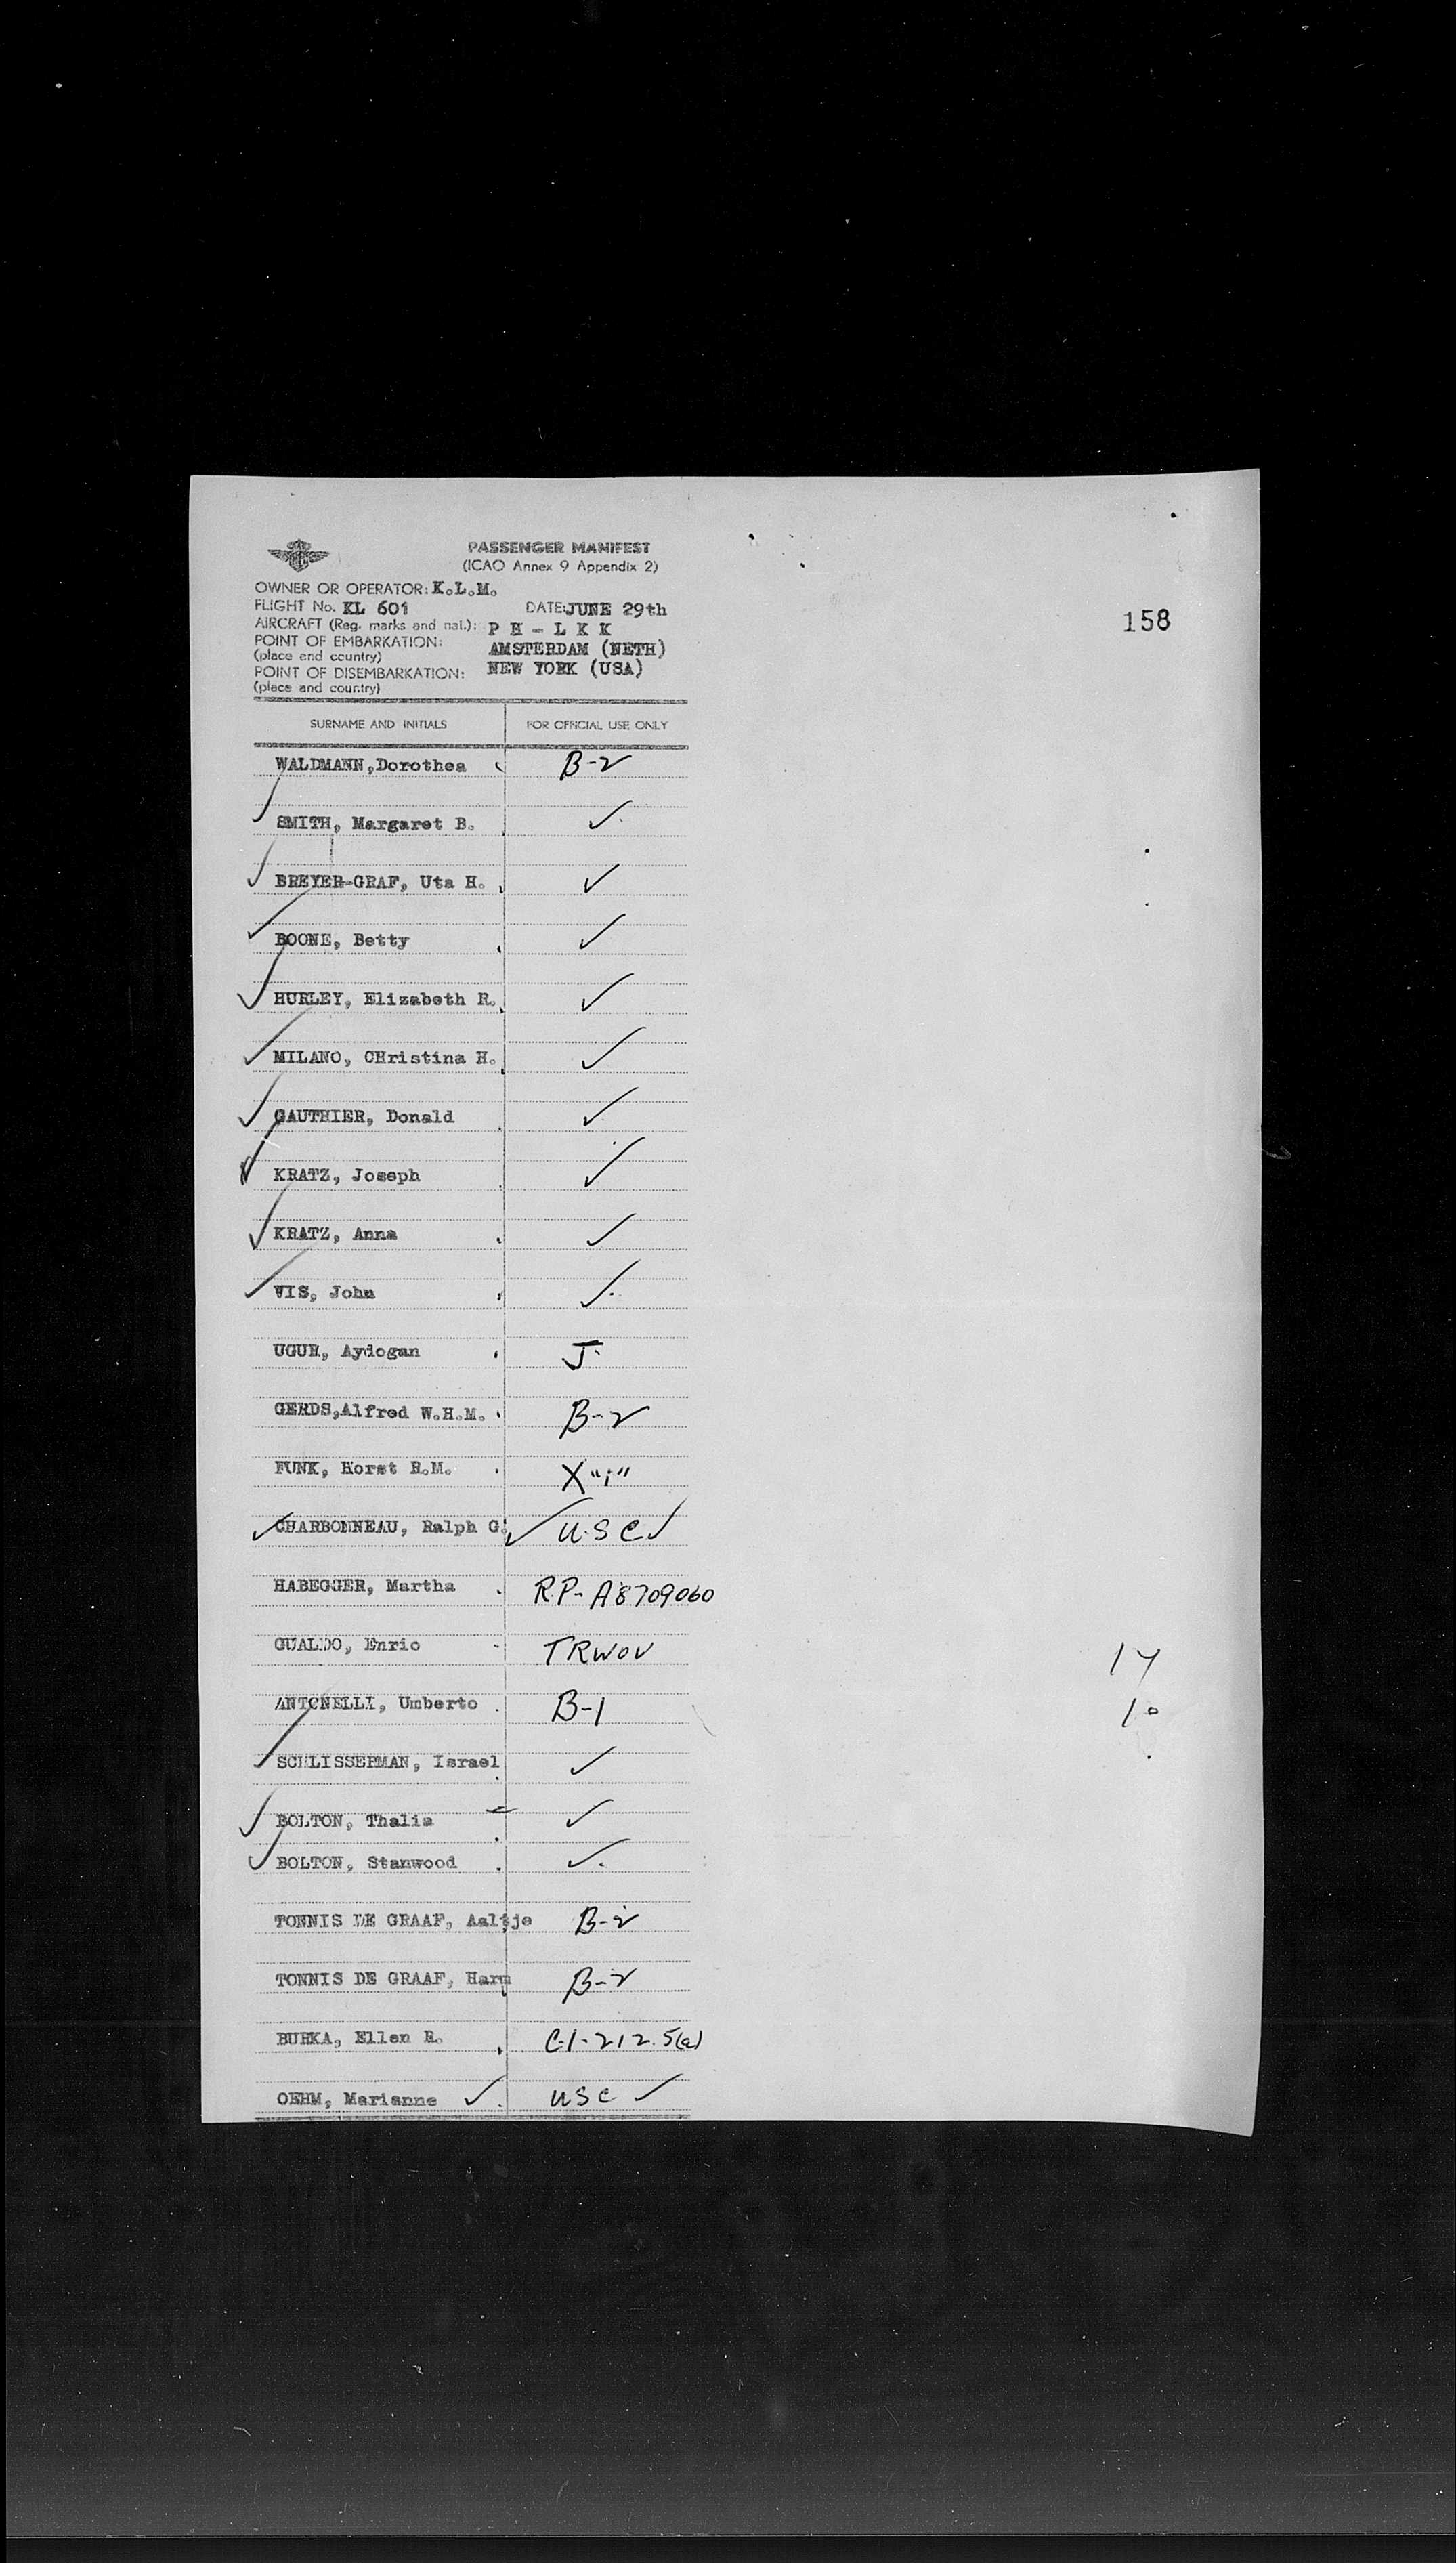 PASSENGER MANIFEST
(ICAO Annex 9 Appendix 2)
OWNER OR OPERATOR: K.L.M.
FLIGHT No. KL 601 DATE: JUNE 29th
158
AIRCRAFT (Reg. marks and nat.): P H - L K K
POINT OF EMBARKATION: AMSTERDAM (NETH)
(place and country)
POINT OF DISEMBARKATION: NEW YORK (USA)
(place and country)
SURNAME AND INITIALS FOR OFFICIAL USE ONLY
WALDMANN,Dorothea B-2
✓ SMITH, Margaret B. ✓
✓ BREYER-GRAF, Uta H. ✓
✓ BOONE, Betty ✓
✓ HURLEY, Elizabeth R. ✓
✓ MILANO, CHristina H. ✓
✓ GAUTHIER, Donald ✓
✓ KRATZ, Joseph ✓
✓ KRATZ, Anna ✓
✓ VIS, John ✓
UGUR, Aydogan J
GERDS,Alfred W.H.M. B-2
FUNK, Horst R.M. X "i"
✓ CHARBONNEAU, Ralph G. ✓ U.S C ✓
HABEGGER, Martha R.P- A8709060
GUALDO, Enrio TRWOV
17
ANTONELLI, Umberto B-1
10
✓ SCHLISSERMAN, Israel ✓
✓ BOLTON, Thalia ✓
✓ BOLTON, Stanwood ✓
TONNIS DE GRAAF, Aaltje B-2
TONNIS DE GRAAF, Harm B-2
BURKA, Ellen R. C-1-212.5(a)
OEHM, Marianne ✓ USC ✓